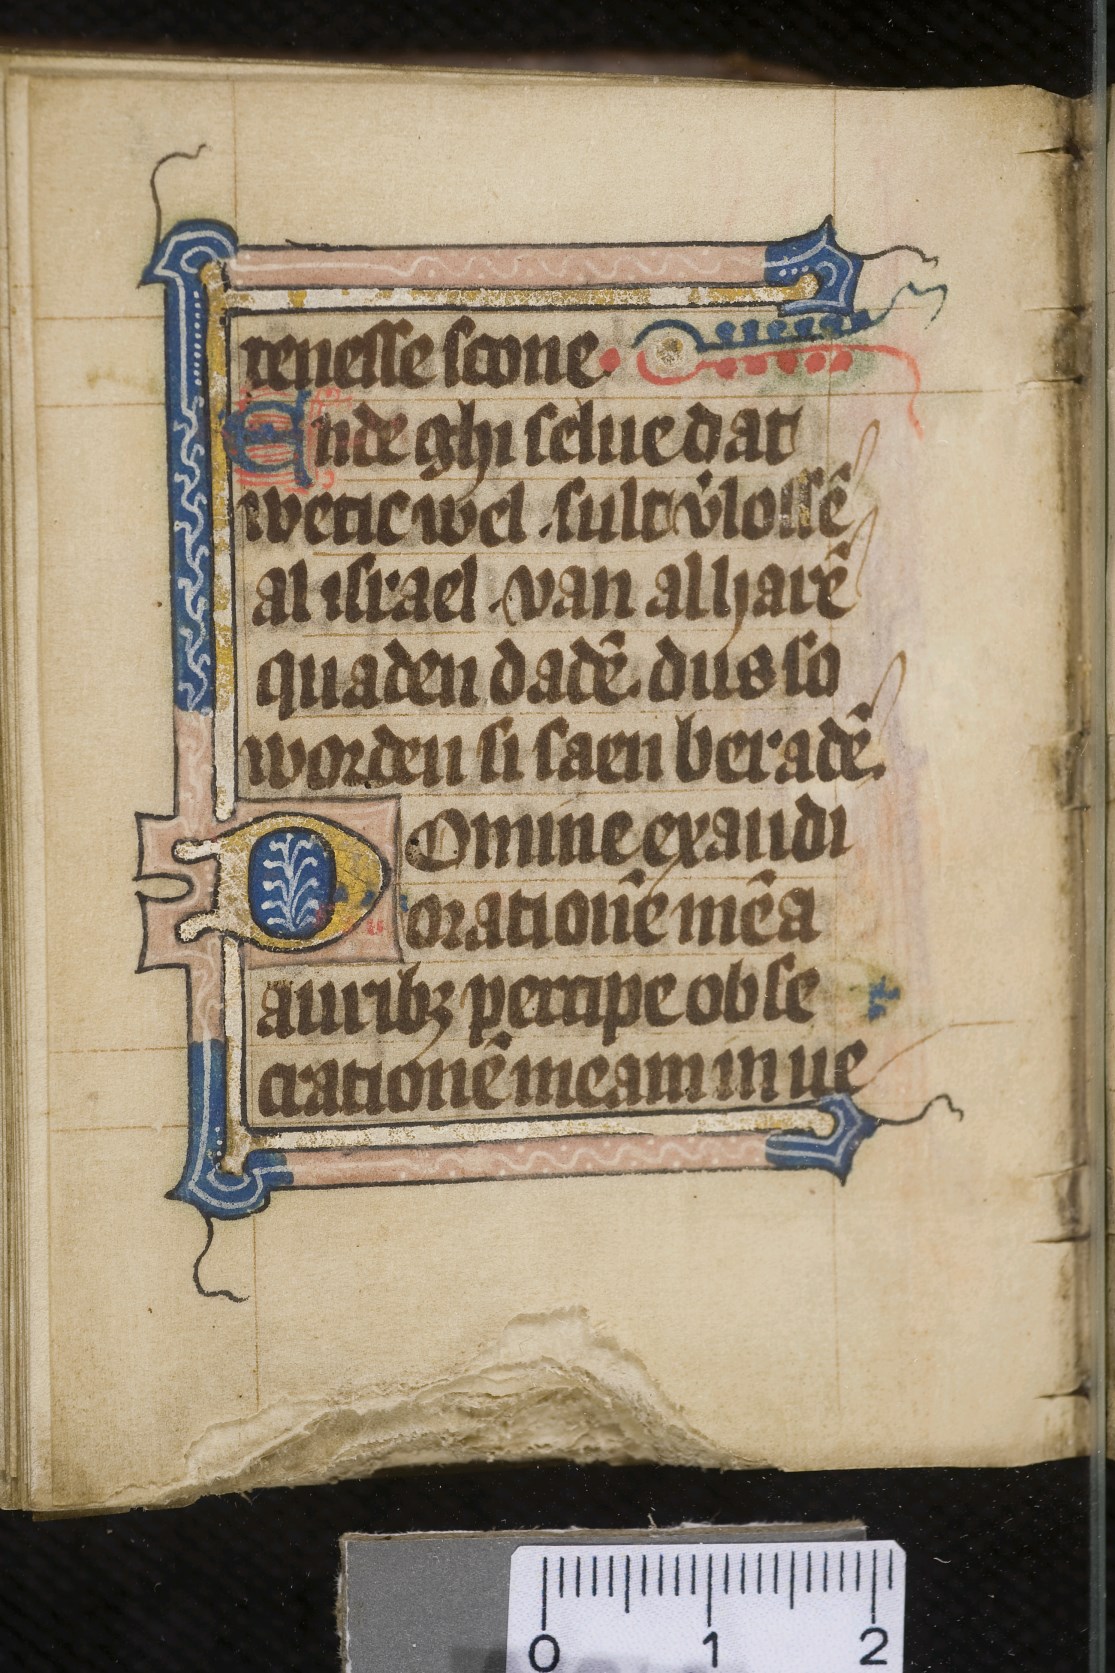 tenesse scone.
Ende ghi selue dat
wetic wel. sult v̾lossē
al israel. van al harē
quaden dadē. dus so
worden si saen beradē.
Domine exaudi
orationē mēa
auribꝫ percipe obse
crationē meam in ue
0 1 2